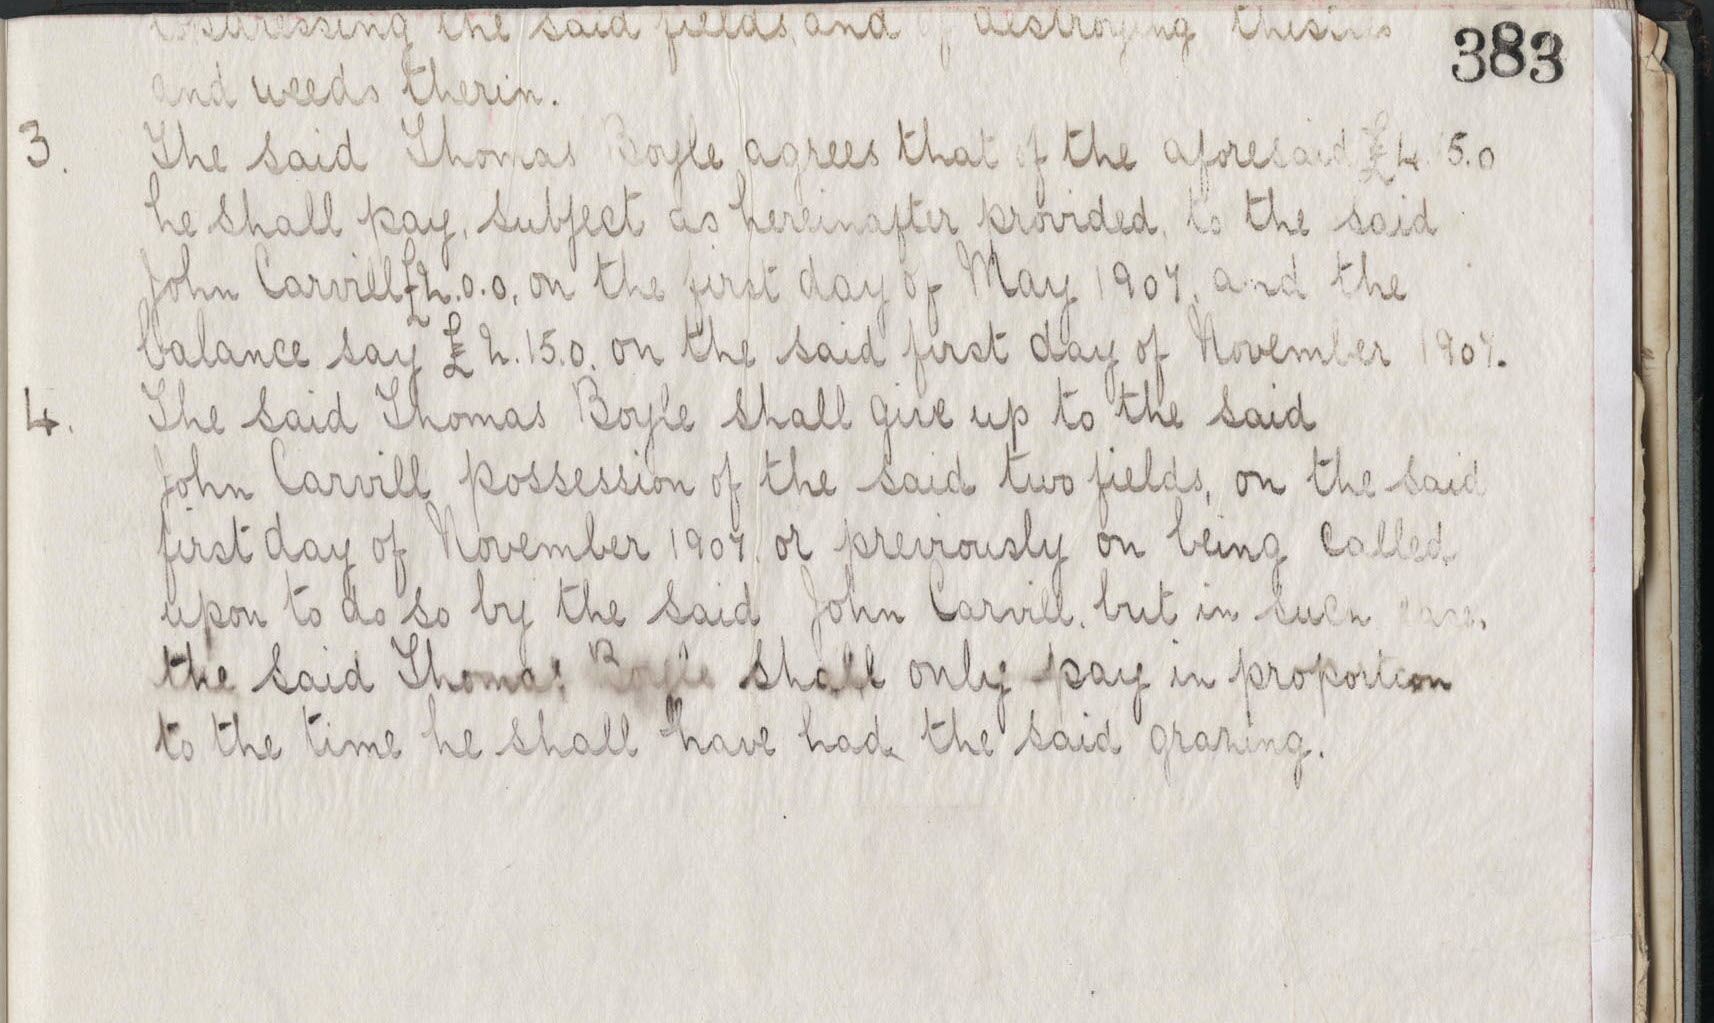 383
the said fields, and of destroying thistles
and weeds therin.
3. The said Thomas Boyle agrees that of the aforesaid £4.15.0
he shall pay, subject as hereinafter provided, to the said
John Carvill £2.0.0, on the first day of May 1907, and the
balance say £2.15.0. on the said first day of November 1907.
4. The said Thomas Boyle shall give up to the said
John Carvill possession of the said two fields, on the said
first day of November 1907. or previously on being called
upon to do so by the said John Carvill. but in such case.
the said Thomas Boyle shall only pay in proportion
to the time he shall have had the said grazing.